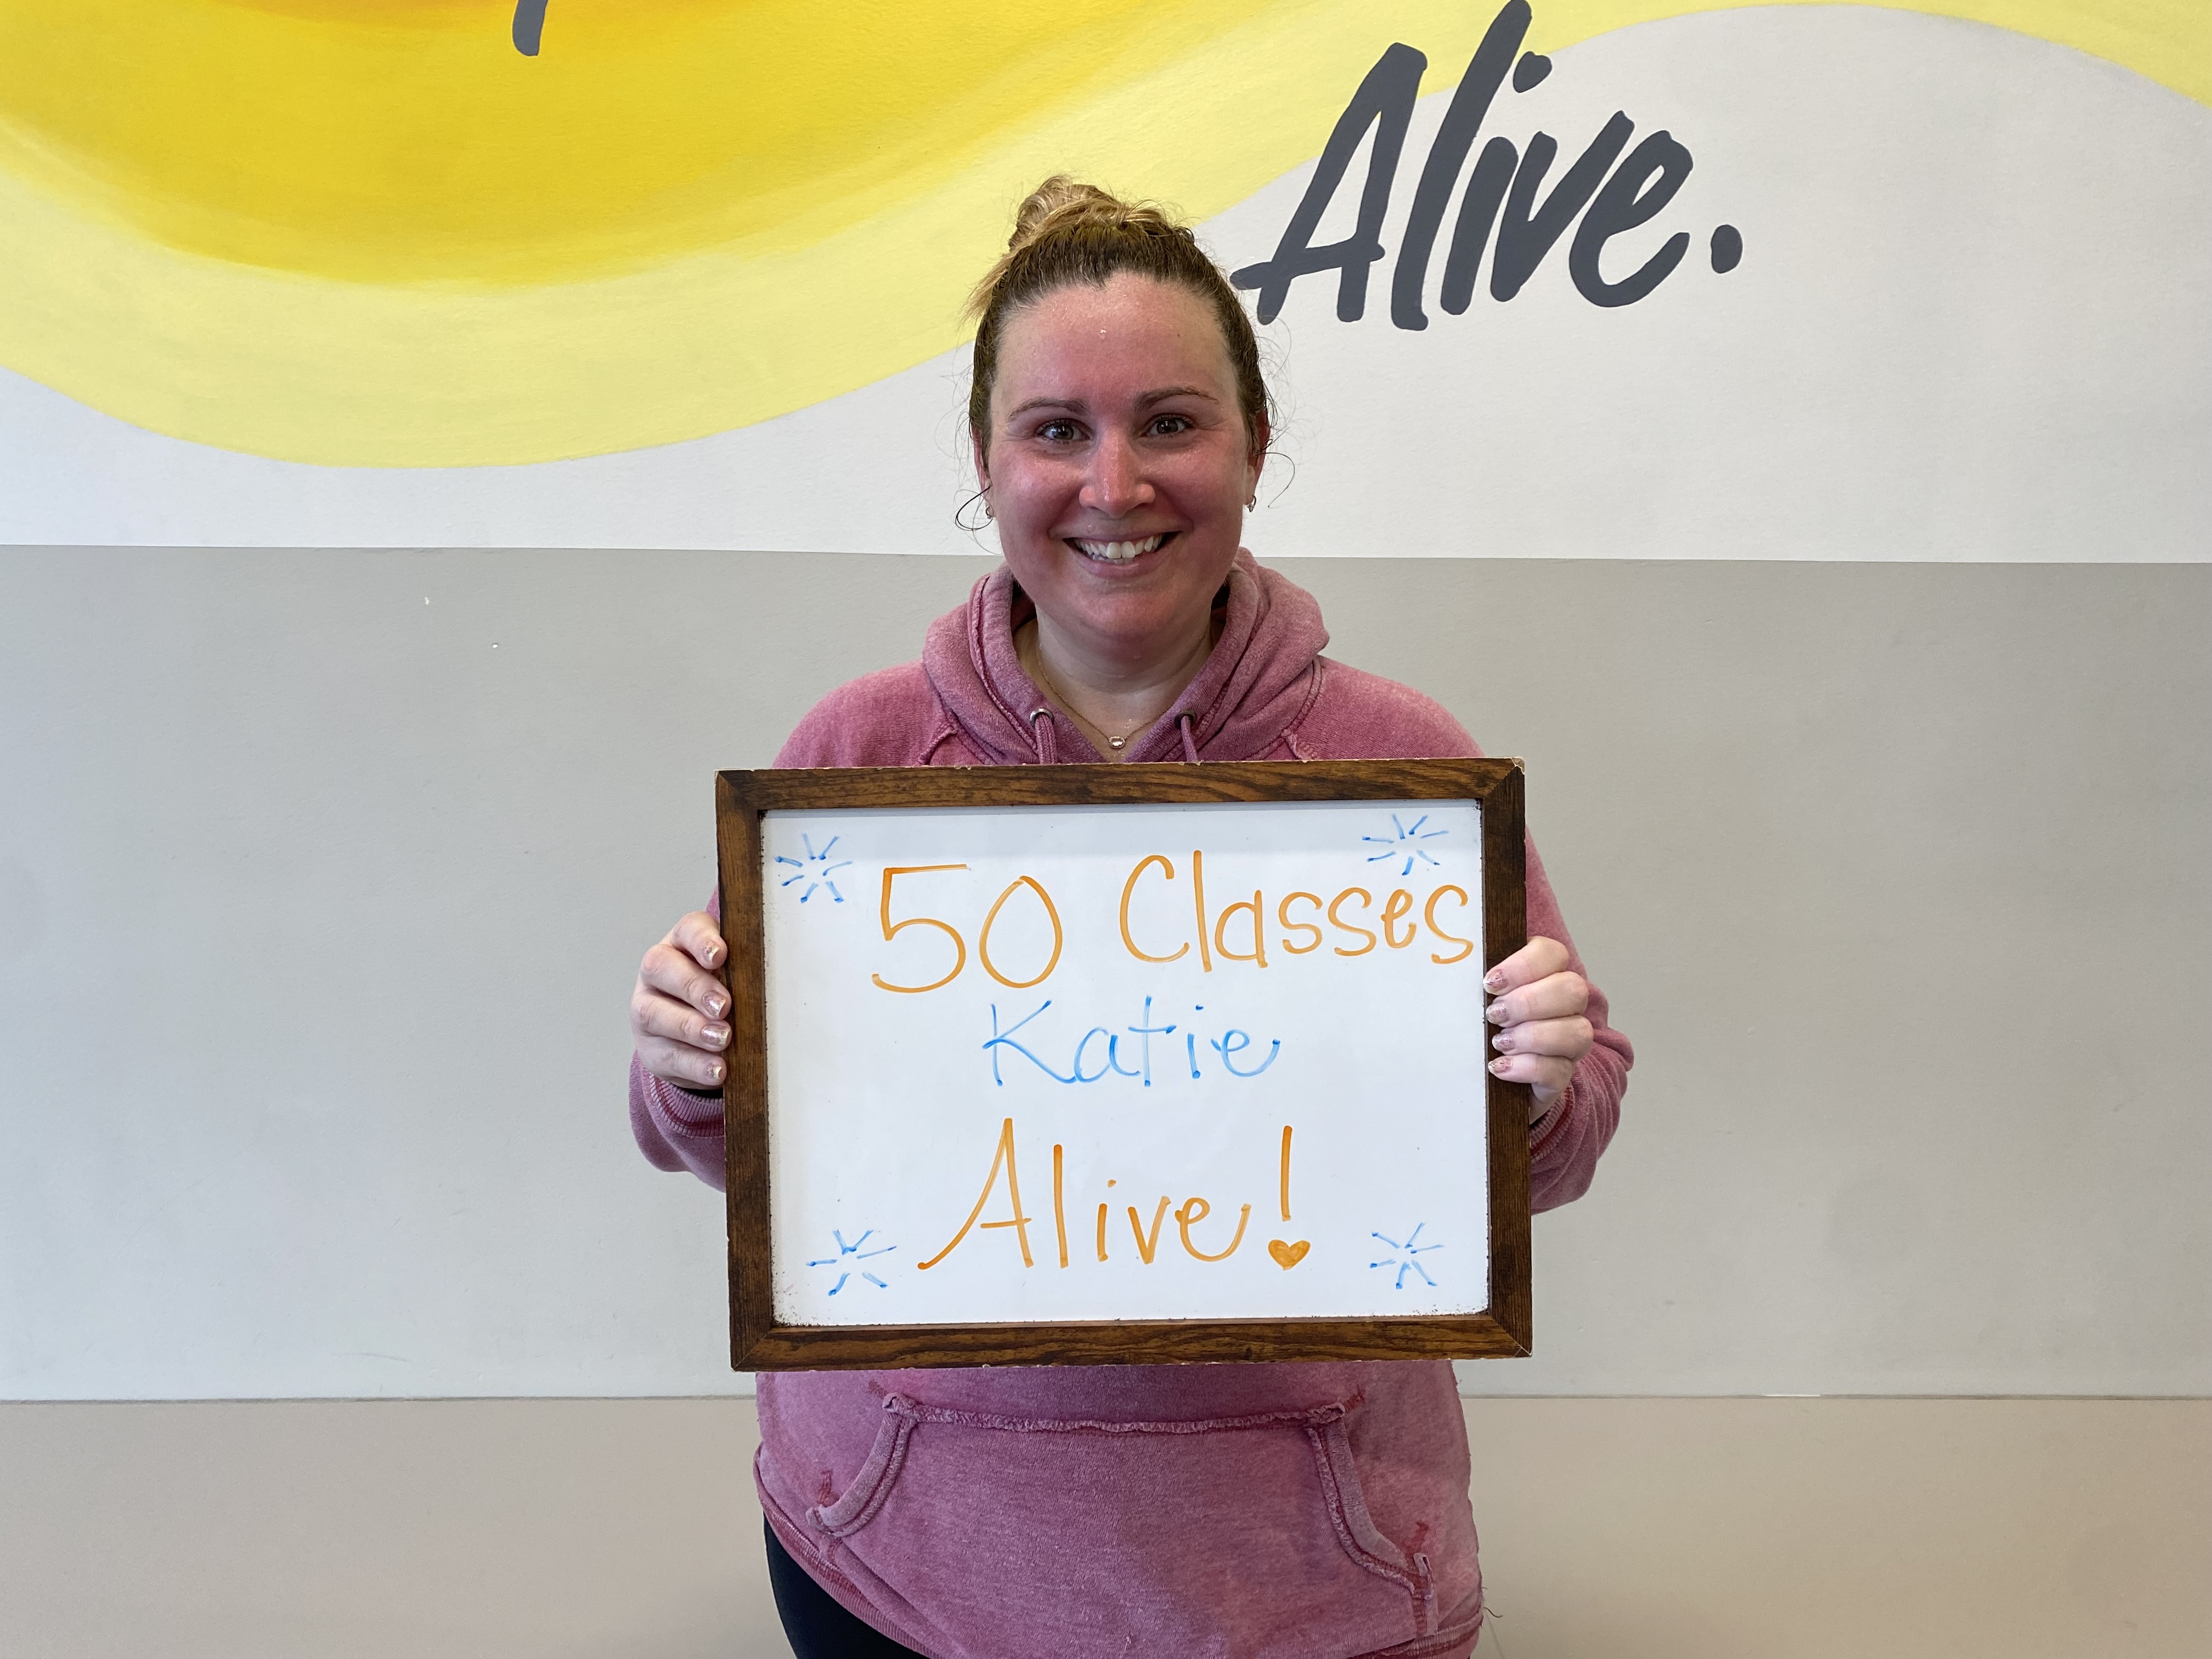 Alive.
50 Classes
Katie
Alive!